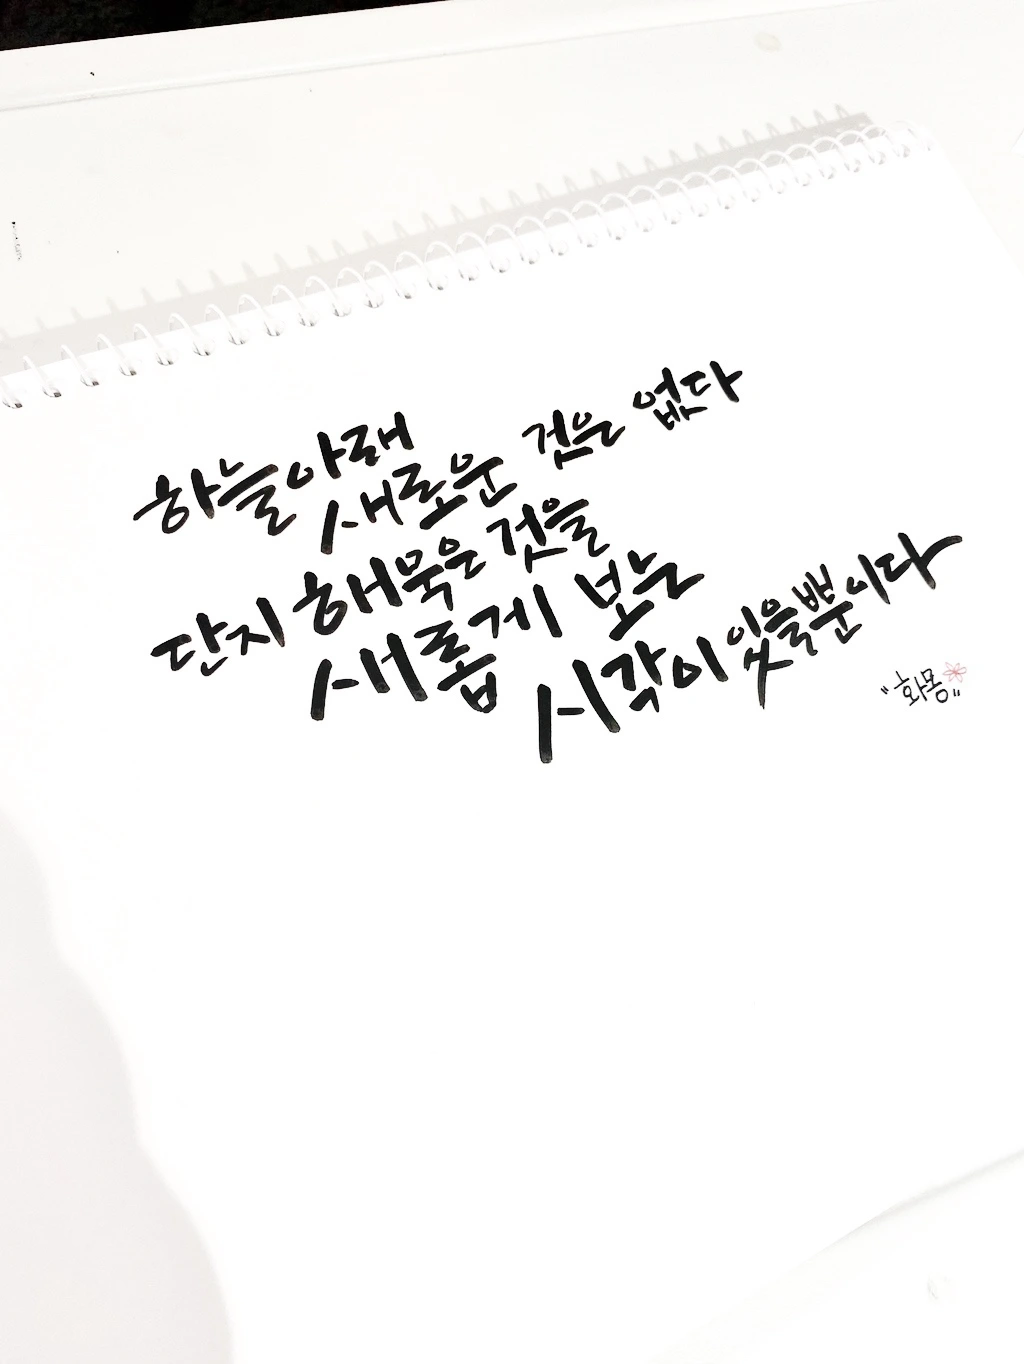 하늘아래
새로운 것은 없다
단지 해묵은 것을
새롭게 보는
시각이 있을뿐이다
"화몽"